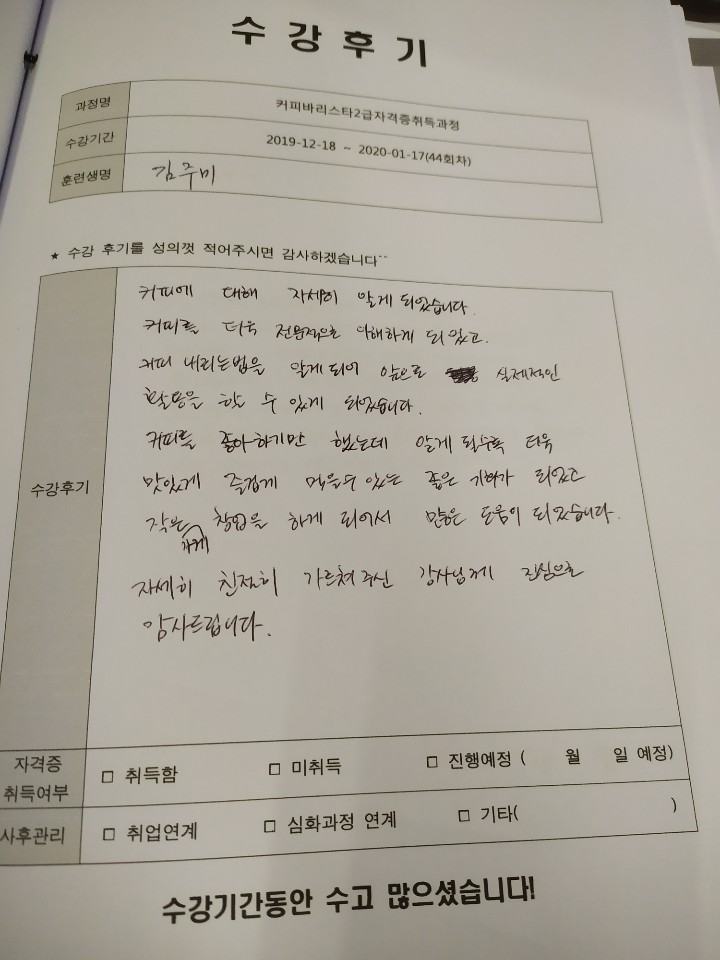 수강후기
과정명 커피바리스타2급자격증취득과정
수강기간 2019-12-18 ~ 2020-01-17(44회차)
훈련생명 김주미
★ 수강 후기를 성의껏 적어주시면 감사하겠습니다^^
수강후기
커피에 대해 자세히 알게 되었습니다.
커피를 더욱 전문적으로 이해하게 되었고.
커피 내리는법을 알게되어 앞으로 실제적인
활용을 할 수 있게 되었습니다.
커피를 좋아하기만 했는데 알게 될수록 더욱
맛있게 즐겁게 먹을수 있는 좋은 기회가 되었고
작은 가게 창업을 하게 되어서 많은 도움이 되었습니다.
자세히 친절히 가르쳐 주신 강사님께 진심으로
감사드립니다.
자격증 취득여부 □ 취득함 □ 미취득 □ 진행예정 ( 월 일 예정)
사후관리 □ 취업연계 □ 심화과정 연계 □ 기타( )
수강기간동안 수고 많으셨습니다!